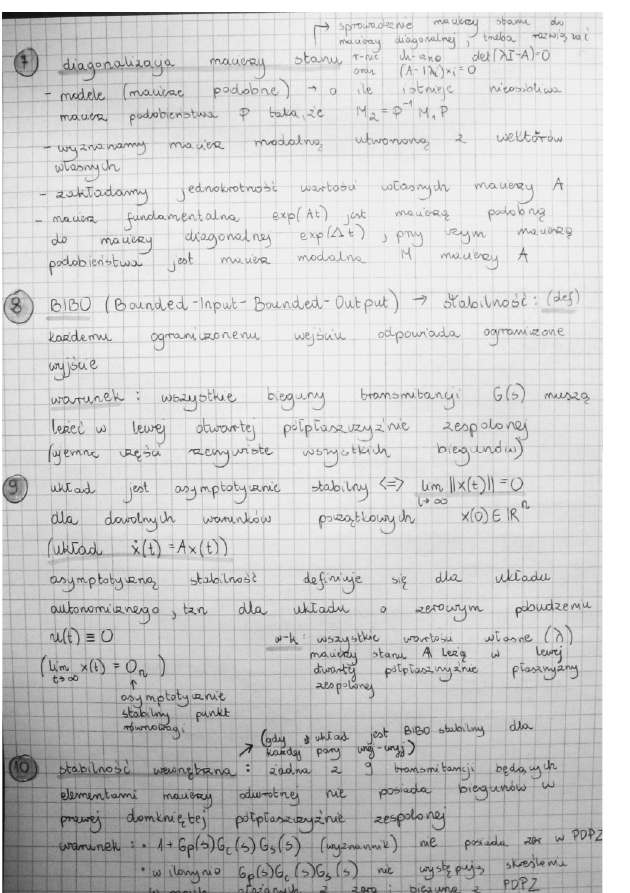 → sprowadzenie macierzy stanu do
macierzy diagonalnej, trzeba rozwiązać
7 diagonalizacja macierzy stanu r-nie ch-czno det(λI-A)=0
oraz (A-Iλi)xi=0
- modele (macierze podobne) → o ile istnieje nieosobliwa
macierz podobieństwa P taka, że M₂ = P⁻¹ M₁ P
- wyznaczamy macierz modalną utworzoną z wektorów
własnych
- zakładamy jednokrotność wartości własnych macierzy A
- macierz fundamentalna exp(At) jest macierzą podobną
do macierzy diagonalnej exp(Δt), przy czym macierzą
podobieństwa jest macierz modalna M macierzy A
8 BIBO (Bounded-Input-Bounded-Output) → stabilność: (def)
każdemu ograniczonemu wejściu odpowiada ograniczone
wyjście
warunek: wszystkie bieguny transmitancji G(s) muszą
leżeć w lewej otwartej półpłaszczyźnie zespolonej
(ujemne części rzeczywiste wszystkich biegunów)
9 układ jest asymptotycznie stabilny <=> lim ||x(t)|| = 0
t→∞
dla dowolnych warunków początkowych x(0) ∈ ℝⁿ
(układ ẋ(t) = Ax(t))
asymptotyczną stabilność definiuje się dla układu
autonomicznego, tzn dla układu o zerowym pobudzeniu
u(t) ≡ 0 w-k: wszystkie wartości własne (λ)
macierzy stanu A leżą w lewej
(lim x(t) = 0ₙ) otwartej półpłaszczyźnie płaszczyzny
t→∞ zespolonej
↑
asymptotycznie
stabilny punkt
równowagi
(gdy układ jest BIBO stabilny dla
każdej pary wej-wyj)
10 stabilność wewnętrzna: żadna z 9 transmitancji będących
elementami macierzy odwrotnej nie posiada biegunów w
prawej domkniętej półpłaszczyźnie zespolonej
warunek: • 1+Gp(s)Gc(s)Gs(s) (wyznacznik) nie posiada zer w PDPZ
• w iloczynie Gp(s)Gc(s)Gs(s) nie występują skreślenia
z zero i bieguna z PDPZ